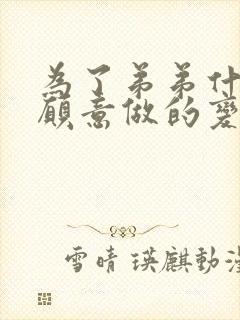 為了弟弟什
願意做的變
雪晴 瑛麒動漫